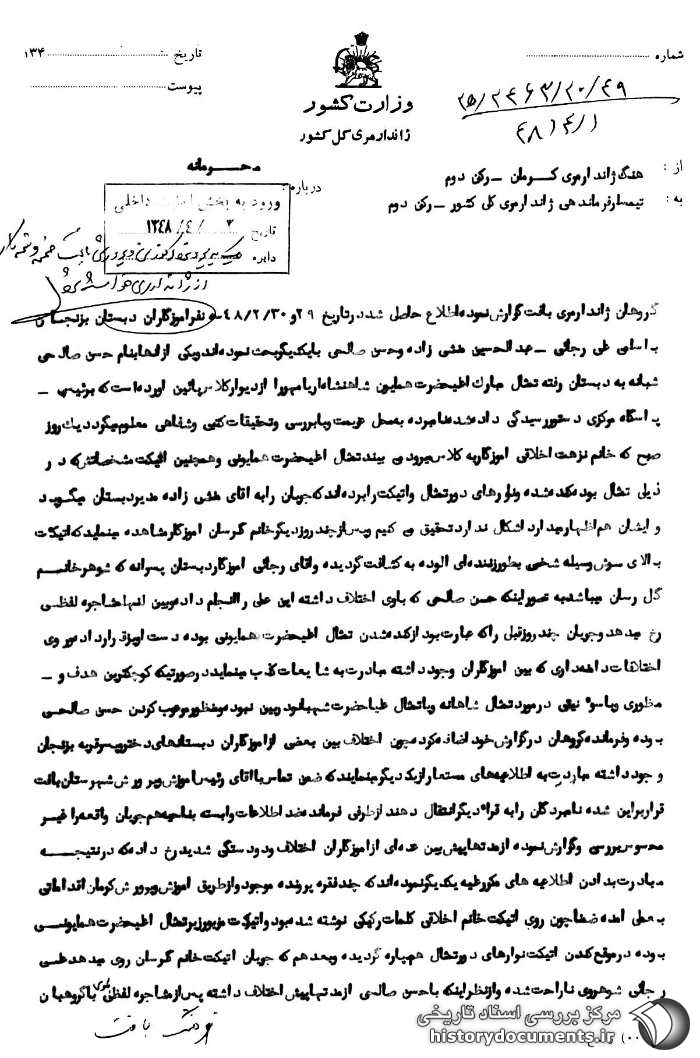 شماره
تاریخ ۱۳۴
پیوست
۲۵/۲۴۶۳/۲۰/۴۹
۴۸/۴/۱
وزارت کشور
ژاندارمری کل کشور
محرمانه
از : هنگ ژاندارمری کرمان – رکن دوم
به : تیمسار فرماندهی ژاندارمری کل کشور – رکن دوم
درباره :
ورود به بخش امنیت داخلی
تاریخ ۳ / ۴ / ۱۳۴۸
دایره
گروهان ژاندارمری بافت گزارش نموده اطلاع حاصل شد در تاریخ ۲۹ و ۴۸/۲/۳۰ سه نفر اموزگاران دبستان بزنجان
باسامی علی رجائی – عبدالحسین منشی زاده و حسن صالحی بایکدیگر بحث نموده اند و یکی از انها بنام حسن صالحی
شبانه به دبستان رفته تمثال مبارک اعلیحضرت همایون شاهنشاه اریامهر را از دیوار کلاس پائین اورده است که برئیس –
پاسگاه مرکزی دستور رسیدگی داده شد نامبرده به محل عزیمت و با بررسی و تحقیقات کتبی و شفاهی معلوم میگردد یک روز
صبح که خانم نزهت اخلاقی اموزگار به کلاس میرود می بیند تمثال اعلیحضرت همایونی و همچنین اتیکت مشخصاتش که در
ذیل تمثال بوده کنده شده و نوارهای دور تمثال و اتیکت را برده اند که جریان را به اقای منشی زاده مدیر دبستان میگوید
و ایشان هم اظهار میدارد اشکال ندارد تحقیق می کنیم و پس از چند روز دیگر خانم گرسان اموزگار مشاهده مینماید که اتیکت
بالای سرش وسیله شخصی بطور زننده ای الوده به کثافت گردیده و اقای رجائی اموزگار دبستان پسرانه که شوهر خانم
گل رسان میباشد به تصور اینکه حسن صالحی که با وی اختلاف داشته این عمل را انجام داده و بین انها مشاجره لفظی
رخ میدهد و جریان چند روز قبل را که عبارت بود از کنده شدن تمثال اعلیحضرت همایونی بوده دست اویز قرار داده و روی
اختلافات دامنه داری که بین اموزگاران وجود داشته مبادرت به شایعات کذب مینماید در صورتیکه کوچکترین هدف و –
منظوری و یا سوء نیتی در مورد تمثال شاهانه و یا تمثال علیاحضرت شهبانو در بین نبوده و منظور مرعوب کردن حسن صالحی
بوده و فرمانده گروهان در گزارش خود اضافه کرده چون اختلاف بین بعضی از اموزگاران دبستانهای دختر و پسر قریه بزنجان
وجود داشته مبادرت به اطلاعیه های مستعار از یکدیگر مینمایند که ضمن تماس با اقای رئیس اموزش و پرورش شهرستان بافت
قرار بر این شده نامبردگان را به قراء دیگر انتقال دهند از طرفی فرمانده ضد اطلاعات وابسته بناحیه هم جریان واقعه را غیر
محسوس بررسی و گزارش نموده از مدتها پیش بین عده ای از اموزگاران اختلاف و دودستگی شدید رخ داده که در نتیجه
مبادرت بدادن اطلاعیه های مکرر علیه یکدیگر نموده اند که چند فقره پرونده موجود و از طریق اموزش و پرورش کرمان اقداماتی
بعمل امده ضمنا چون روی اتیکت خانم اخلاقی کلمات رکیکی نوشته شده بود و اتیکت مزبور زیر تمثال اعلیحضرت همایونی
بوده در موقع کندن اتیکت نوارهای دور تمثال هم پاره گردیده و بعد هم که جریان اتیکت خانم گرسان روی میدهد علی
رجائی شوهر وی ناراحت شده و از نظر اینکه با حسن صالحی از مدتها پیش اختلاف داشته پس از مشاجره لفظی با گروهبان
مرکز بررسی اسناد تاریخی
historydocuments.ir